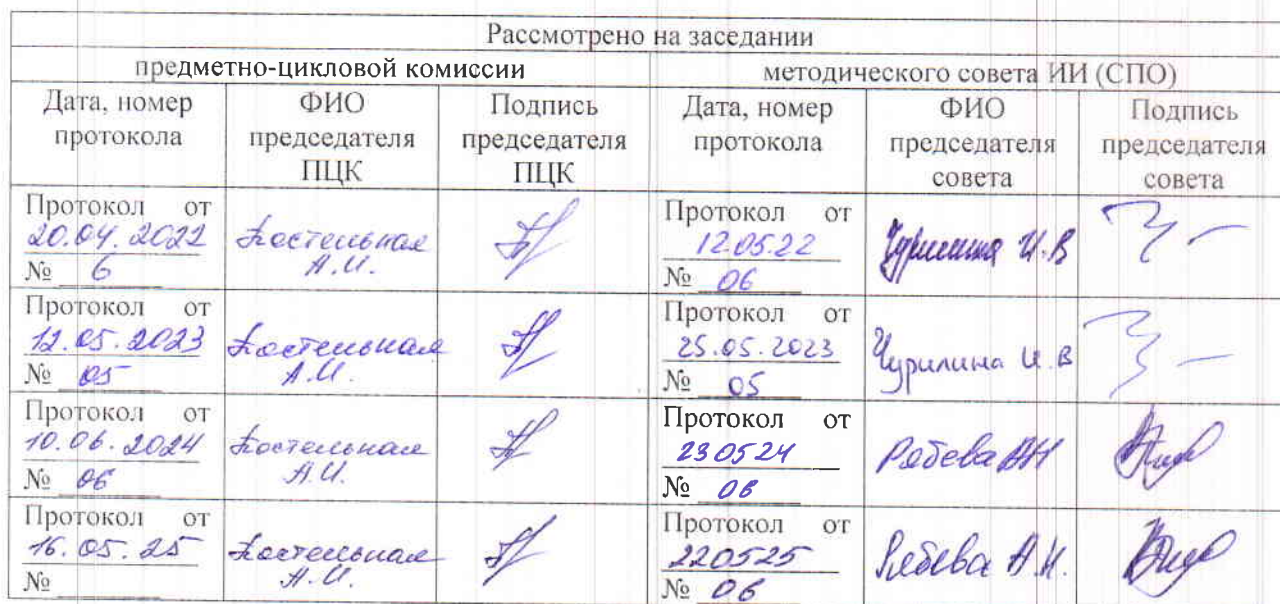 Рассмотрено на заседании
предметно-цикловой комиссии
методического совета ИИ (СПО)
Дата, номер протокола
ФИО председателя ПЦК
Подпись председателя ПЦК
Дата, номер протокола
ФИО председателя совета
Подпись председателя совета
Протокол от
20.04.2022
№ 6
Костельная
А.И.
Протокол от
12.05.22
№ 06
Чурилина И.В
Протокол от
12.05.2023
№ 05
Костельная
А.И.
Протокол от
25.05.2023
№ 05
Чурилина И.В
Протокол от
10.06.2024
№ 06
Костельная
А.И.
Протокол от
230524
№ 06
Рябева АН
Протокол от
16.05.25
№
Костельная
А.И.
Протокол от
220525
№ 06
Рябева А.Н.